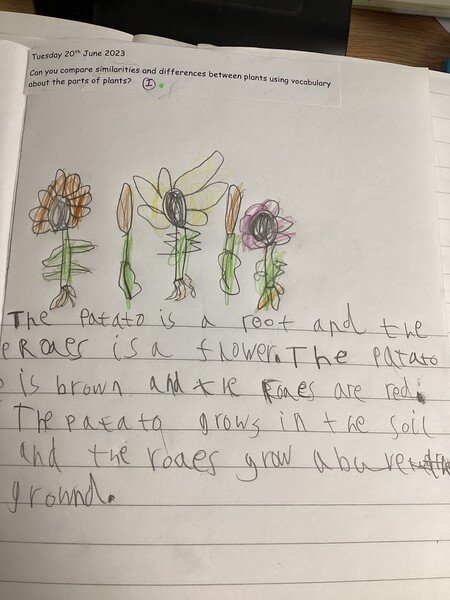 Tuesday 20th June 2023
Can you compare similarities and differences between plants using vocabulary
about the parts of plants? I
The patato is a root and the
Roaes is a flower. The patato
is brown and the Roaes are red.
The patato grows in the soil
and the roaes grow abuve the
ground.